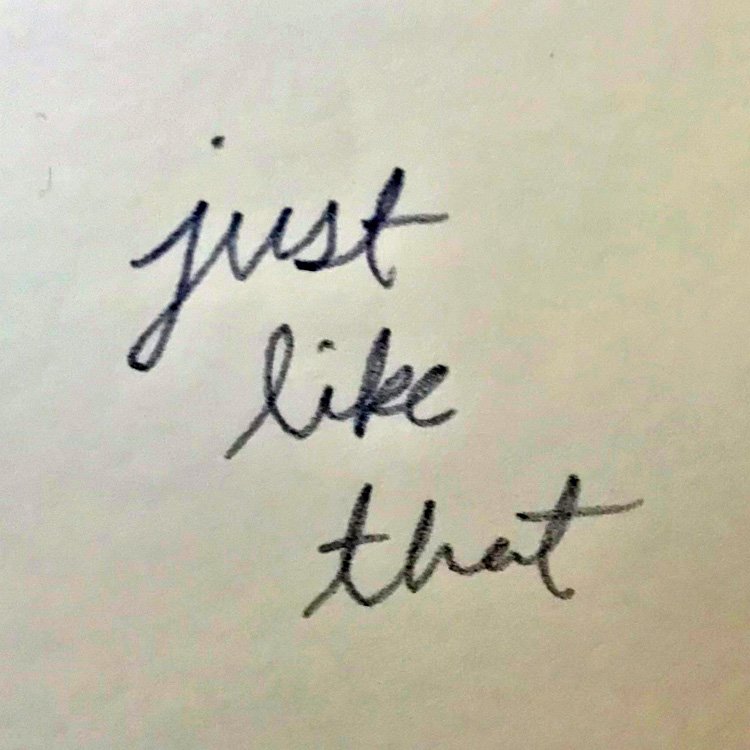 just
like
that